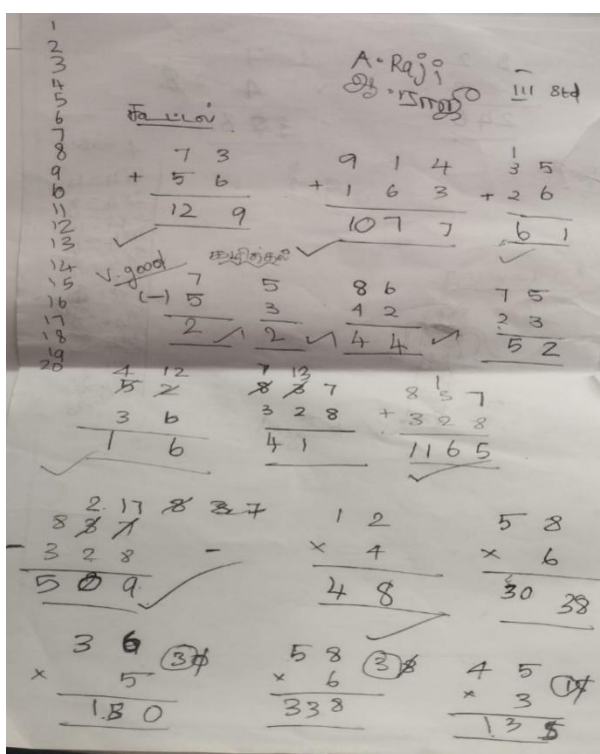 1
2
3
4
5
6
7
8
9
10
11
12
13
14
15
16
17
18
19
20
A. Raji III Std
ஆ. ராஜி
கூட்டல்
7 3
+ 5 6
12 9
9 1 4
+ 1 6 3
10 7 7
1
3 5
+ 2 6
6 1
V. good கழித்தல்
7
(-) 5
2
5
3
2
8 6
4 2
4 4
7 5
2 3
5 2
4 12
5 2
3 6
1 6
7 13
8 3 7
3 2 8
4 1
1
8 3 7
+ 3 2 8
11 6 5
2 17 8 3 7
8 3 7
- 3 2 8
5 0 9
-
1 2
× 4
4 8
5 8
× 6
30 38
3 6
× 5
1 8 0
5 8
× 6
338
4 5
× 3
1 3 5